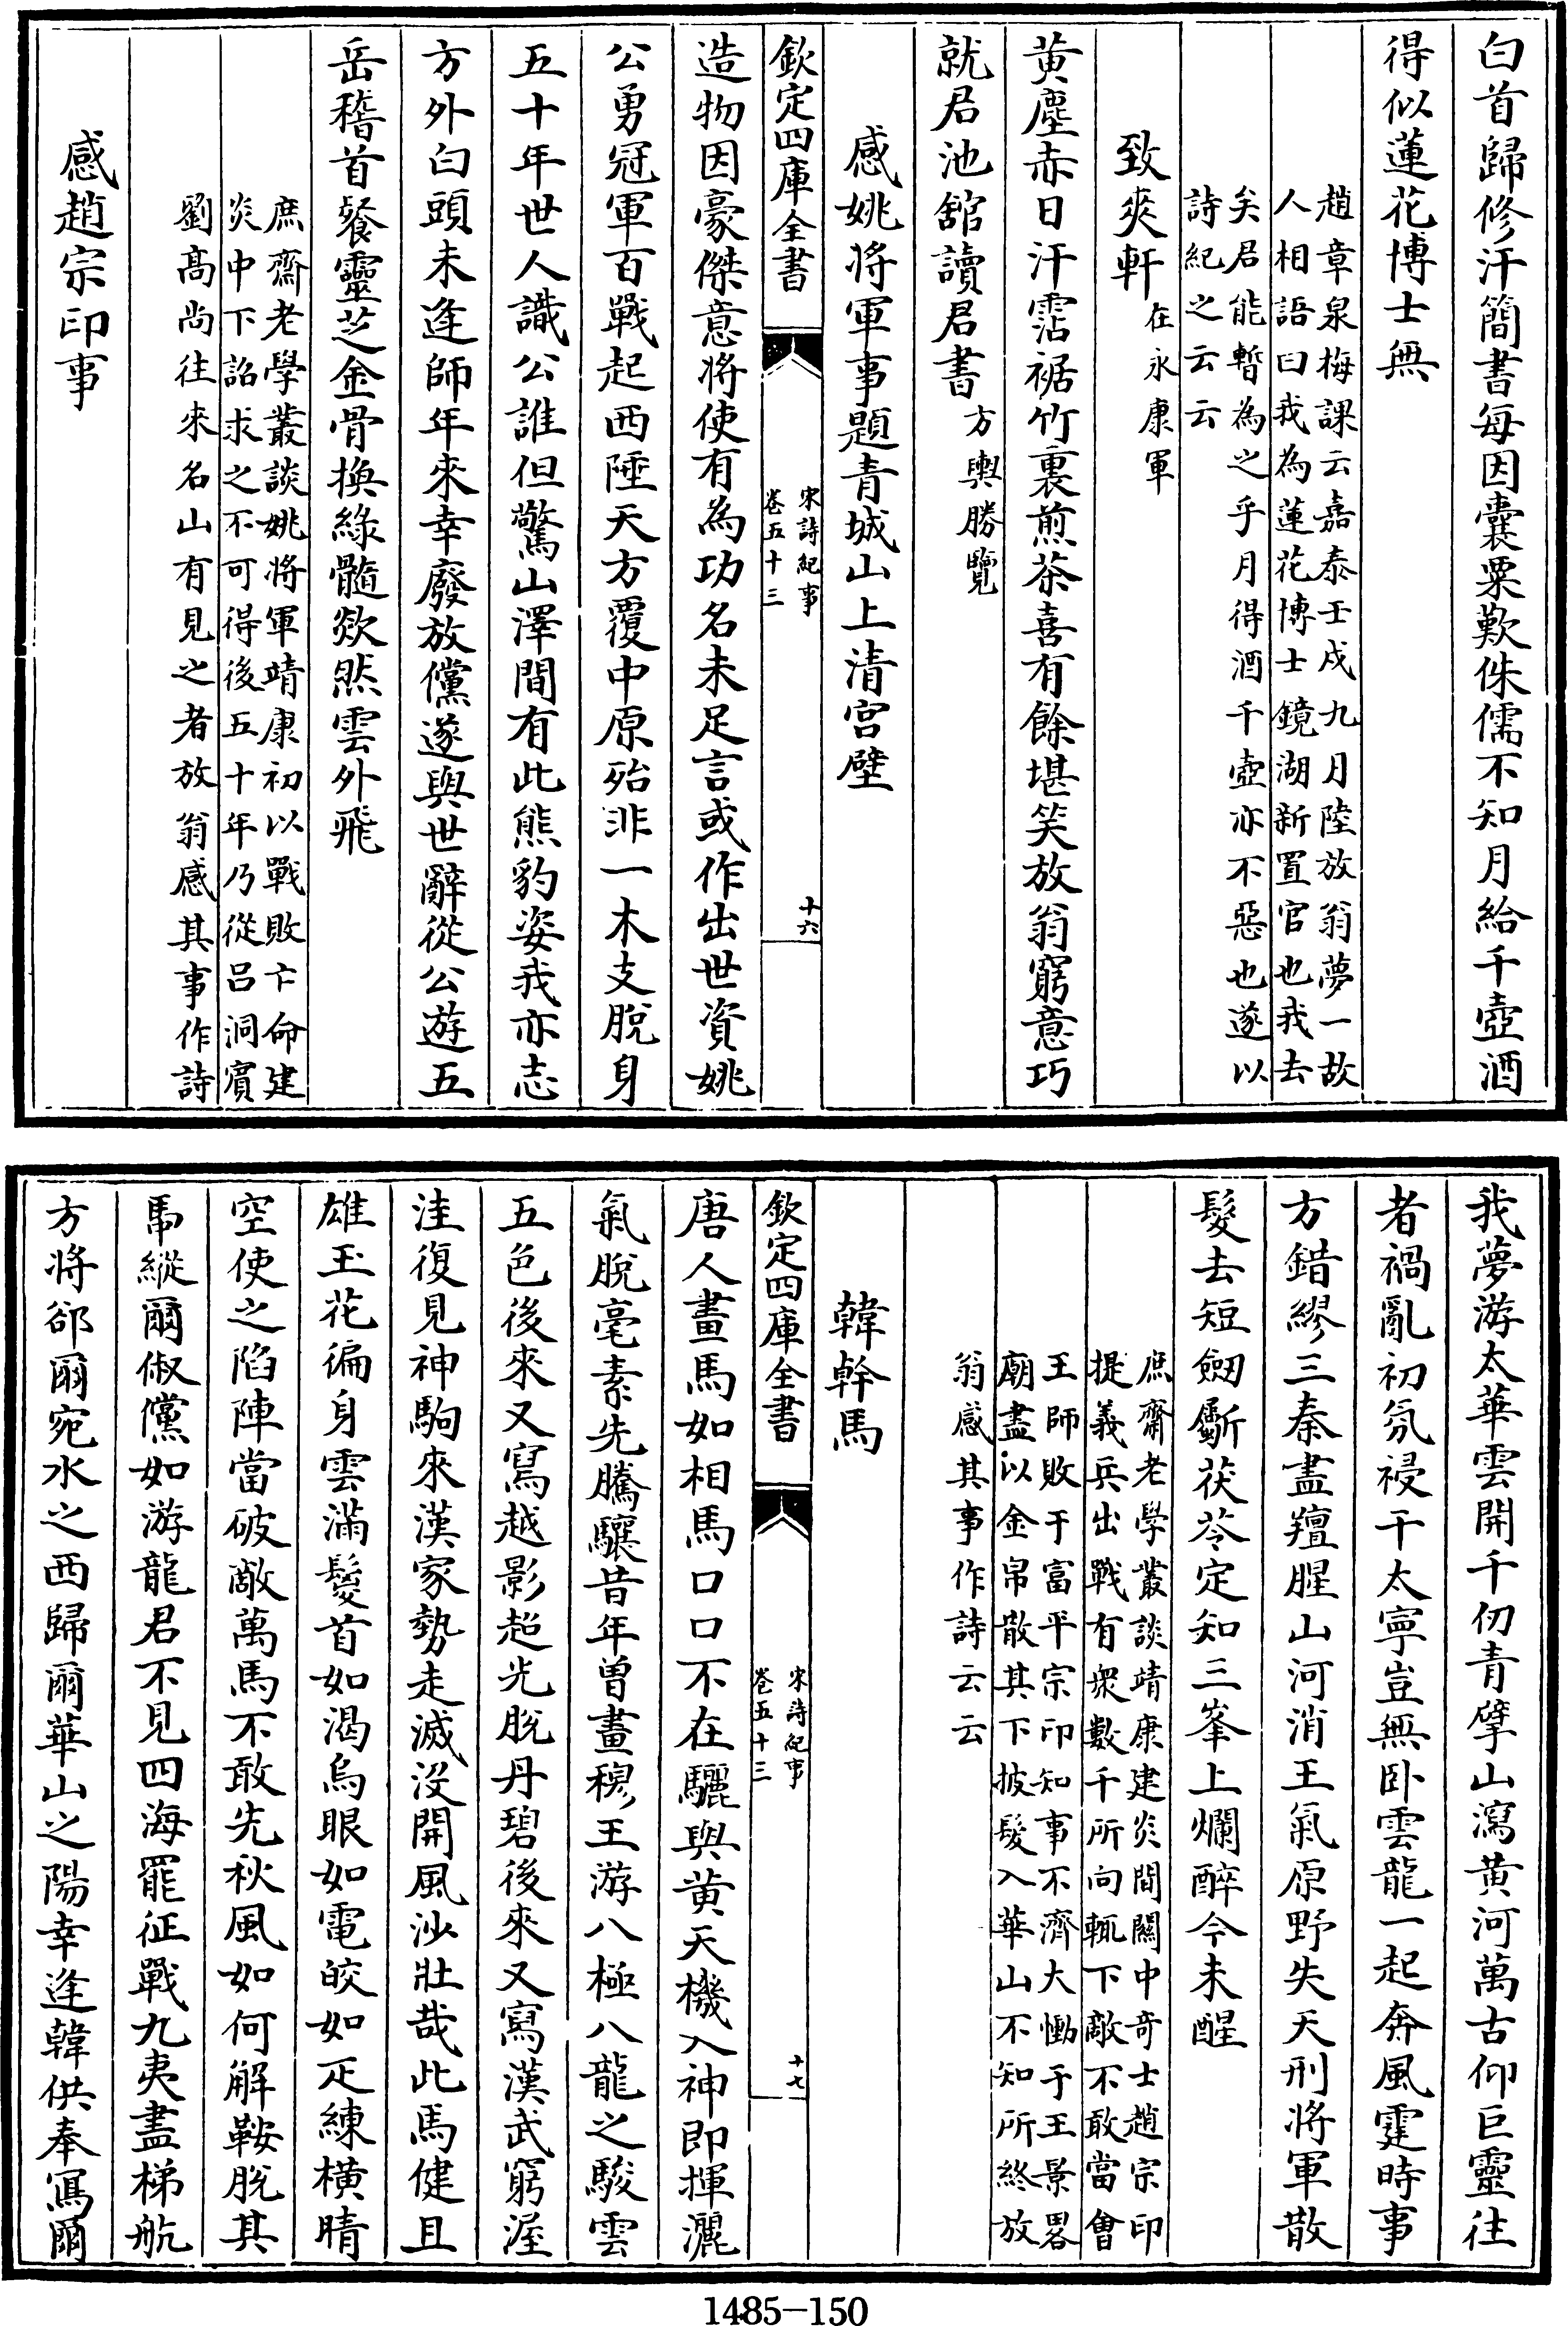 白首歸修汗簡書每因囊粟歎侏儒不知月給千壺酒
得似蓮花博士無
趙章泉梅課云嘉泰壬戌九月陸放翁夢一故
人相語曰我為蓮花博士鏡湖新置官也我去
矣君能暫為之乎月得酒千壺亦不惡也遂以
詩紀之云云
致爽軒在永康軍
黄塵赤日汗霑裾竹裏煎茶喜有餘堪笑放翁窮意巧
就君池舘讀君書方輿勝覽
感姚將軍事題青城山上清宫壁
欽定四庫全書
宋詩紀事
卷五十三
十六
造物因豪傑意將使有為功名未足言或作出世資姚
公勇冠軍百戰起西陲天方覆中原殆非一木支脫身
五十年世人識公誰但驚山澤間有此熊豹姿我亦志
方外白頭未逢師年來幸廢放儻遂與世辭從公遊五
岳稽首餐靈芝金骨換綠髓欻然雲外飛
庶齋老學叢談姚將軍靖康初以戰敗亡命建
炎中下詔求之不可得後五十年乃從吕洞賓
劉高尚往來名山有見之者放翁感其事作詩
感趙宗印事
我夢游太華雲開千仞青擘山瀉黄河萬古仰巨靈往
者禍亂初氛祲干太寧豈無卧雲龍一起奔風霆時事
方錯繆三秦盡羶腥山河消王氣原野失天刑將軍散
髮去短劒斸茯苓定知三峯上爛醉今未醒
庶齋老學叢談靖康建炎間關中奇士趙宗印
提義兵出戰有衆數千所向輒下敵不敢當會
王師敗于富平宗印知事不濟大慟于王景畧
廟盡以金帛散其下披髮入華山不知所終放
翁感其事作詩云云
韓幹馬
欽定四庫全書
宋詩紀事
卷五十三
十七
唐人畫馬如相馬口口不在驪與黄天機入神即揮灑
氣脫毫素先騰驤昔年曽畫穆王游八極八龍之駿雲
五色後來又寫越影超光脫丹碧後來又寫漢武窮渥
洼復見神駒來漢家勢走滅沒開風沙壯哉此馬健且
雄玉花徧身雲滿鬉首如渴烏眼如電皎如疋練横晴
空使之陷陣當破敵萬馬不敢先秋風如何解鞍脫其
馽縱爾俶儻如游龍君不見四海罷征戰九夷盡梯航
方將郤爾宛水之西歸爾華山之陽幸逢韓供奉寫爾
1485－150